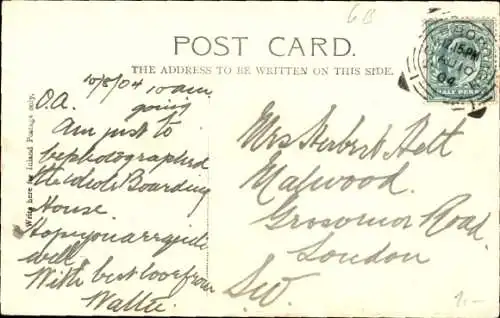 GB
POST CARD.
THE ADDRESS TO BE WRITTEN ON THIS SIDE.
Write here for Inland Postage only.
10/8/04 10 am
D.A.
going
Am just to
be photographed
the whole Boarding
House.
Hope you are quite
well
With best love from
Mrs Herbert
Malwood.
Grosvenor Road
London
S.W.
12.15 PM
AU 10
04
HALF PENNY
1.-